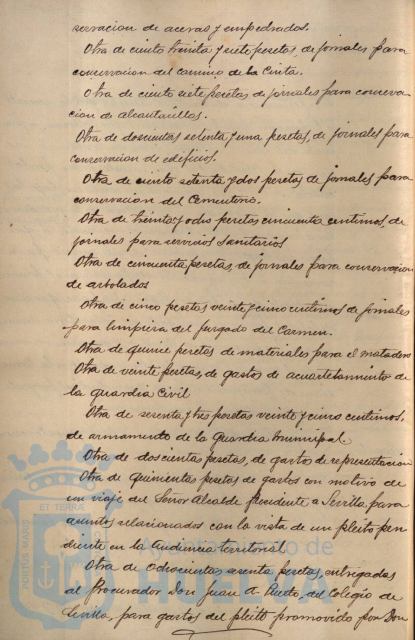 servacion de aceras y empedrados.
Otra de ciento treinta y siete pesetas, de jornales para
conservacion del camino de la Cinta.
Otra de ciento siete pesetas de jornales para conserva-
cion de alcantarillas.
Otra de doscientas setenta y una pesetas, de jornales para
conservacion de edificios.
Otra de ciento setenta y dos pesetas de jornales para
conservacion del Cementerio.
Otra de treinta y ocho pesetas cincuenta centimos, de
jornales para servicios sanitarios
Otra de cincuenta pesetas, de jornales para conservacion
de arbolados
Otra de cinco pesetas veinte y cinco centimos de jornales
para limpieza del juzgado del Carmen.
Otra de quince pesetas de materiales para el matadero
Otra de veinte pesetas, de gastos de acuartelamiento de
la guardia Civil
Otra de y tres pesetas veinte y cinco centimos,
de armamento de la Guardia municipal
Otra de doscientas pesetas, de gastos de representacion
Otra de quinientas pesetas de gastos con motivo de
un viaje del Señor Alcalde Presidente a Sevilla para
asuntos relacionados con la vista de un pleito pen-
diente en la audiencia territorial
Otra de ochocientas pesetas, entregadas
al Procurador Don Juan A. del Colegio de
Sevilla, para gastos del pleito promovido por Don
PORTUS MARIS ET TERRÆ
Ayuntamiento de
HUELVA